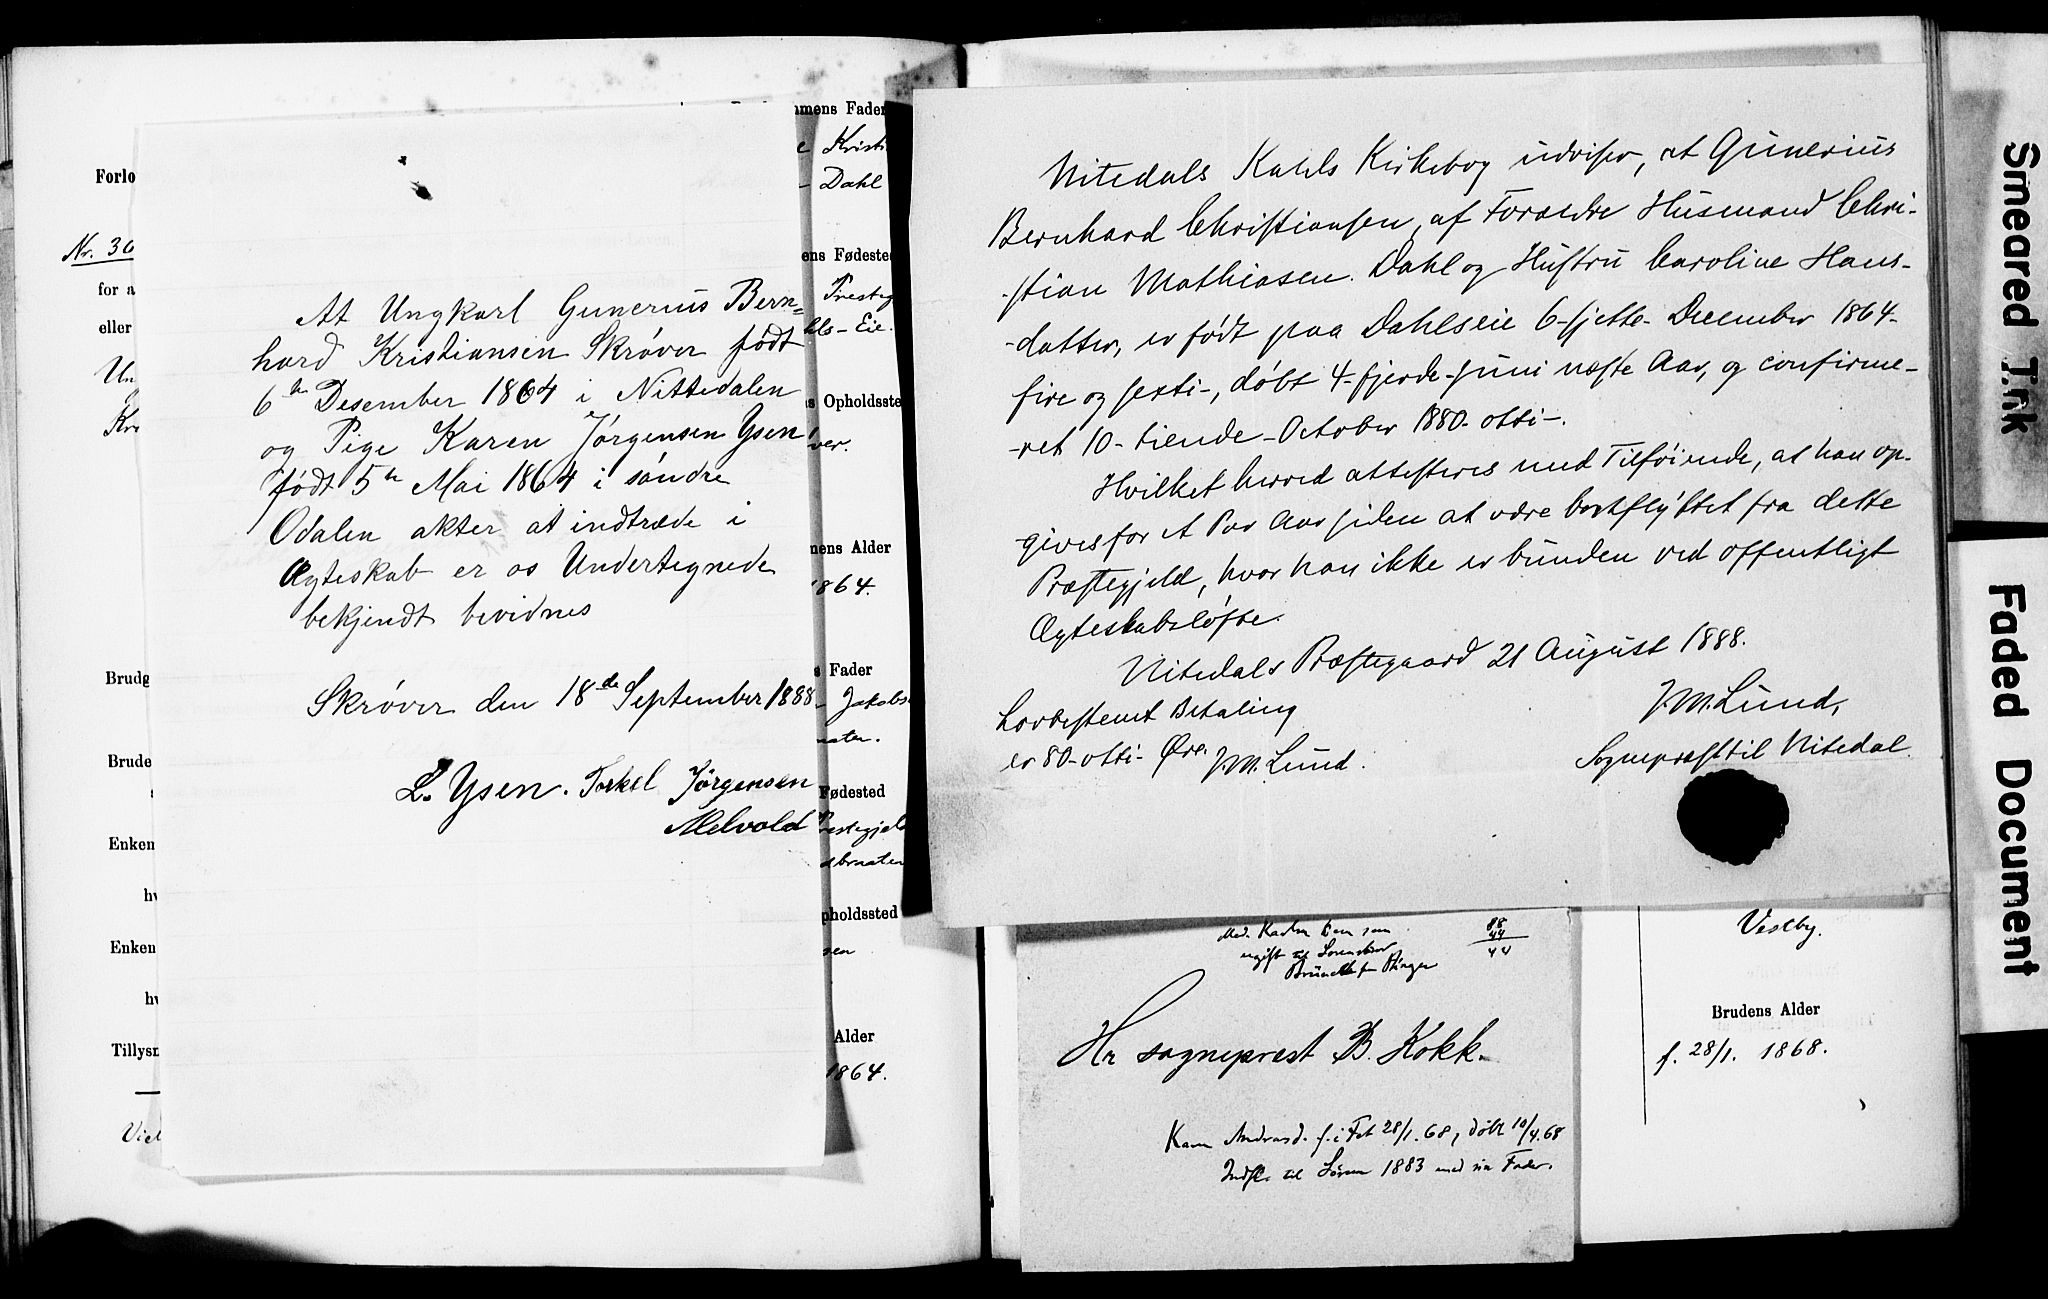 Forlo
Nr. 30
for a
eller
Un
Kr
Brudg
Brude
Enken
hv
Enken
hv
Tillysn
Viel
At Ungkarl Gunerius Bern=
hard Kristiansen Skrøver født
6te Desember 1864 i Nittedalen
og Pige Karen Jørgensen Ysen
født 5te Mai 1864 i søndre
Odalen akter at indtræde i
Ægteskab er os Undertegnede
bekjendt bevidnes
Skrøver den 18de September 1888
L. Ysen. Torkel Jørgensen
Melvold
mmens Fader
Kristi
Dahl
ens Fødested
Presteg
ls-Eie.
s Opholdsste
ver.
mens Alder
1864.
s Fader
Jakobs
naten.
Fødested
restegjel
braaten
pholdssted
sen
Alder
1864.
Nitedals Kalds Kirkebog udviser, at Gunerius
Bernhard Christiansen, af Forældre Husmand Chri-
-stian Mathiasen. Dahl og Hustru Caroline Hans-
-datter, er født paa Dahlseie 6-sjette- December 1864-
fire og sexti-, døbt 4-fjerde-Juni næste Aar, og confirme-
-ret 10-tiende-October 1880-otti-.
Hvilket herved attesteres med Tilføiende, at han op-
-gives for et Par Aar siden at være bortflyttet fra dette
Præstegjeld, hvor han ikke er bunden ved offentligt
Ægteskabsløfte.
Nitedals Præstegaard 21 August 1888.
J.M. Lund,
Sognepræst til Nitedal.
Lovbestemt Betaling
er 80-otti-Øre. J.M. Lund.
88
44
44
Hr sogneprest B. Kokk.
Karen Andrasd. f. i Fet 28/1.68, døbt 10/4.68
Indfl. til Sørum 1883 med sin Fader.
Vestby.
Brudens Alder
f. 28/1. 1868.
Smeared Ink
Faded Document